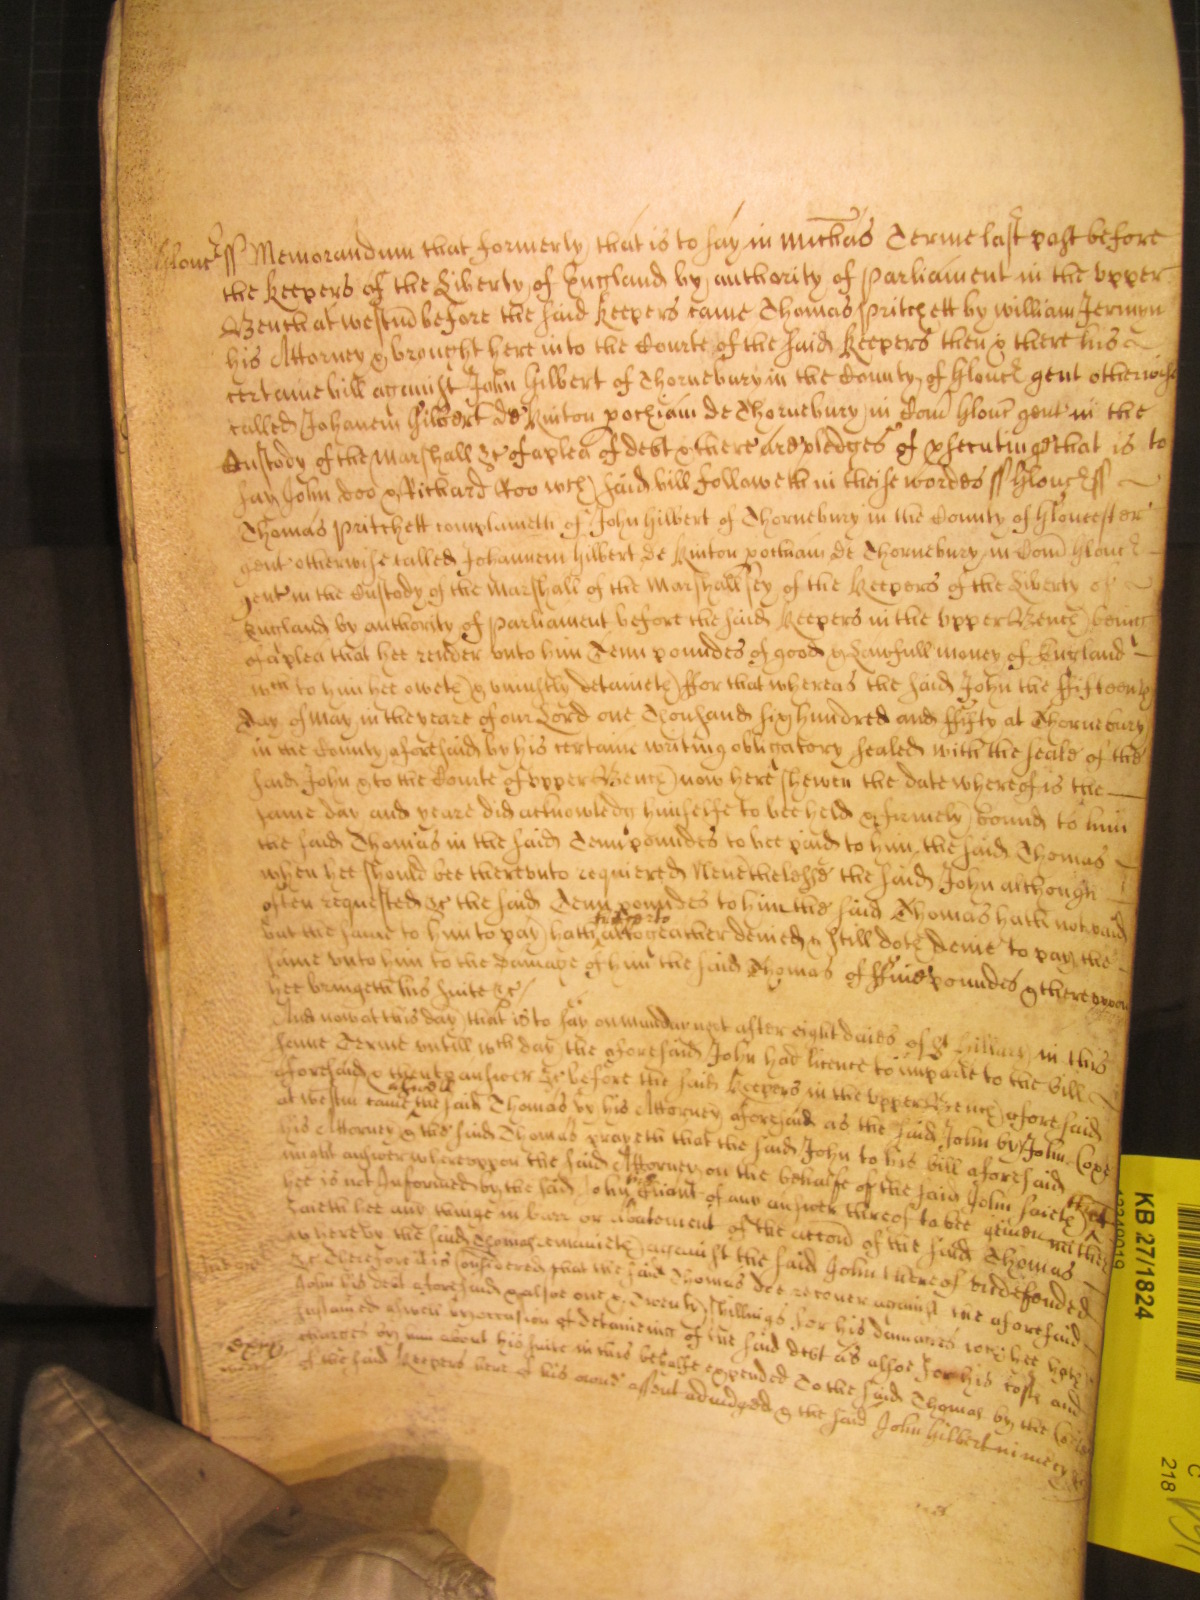 Glouc ss Memorandum that formerly that is to say in Michas Terme last past before
the Keepers of the Liberty of England by authority of Parliament in the upper
Bench at westm before the said Keepers came Thomas Pritchett by william Jermyn
his Attorney & brought here into the Courte of the said Keepers then & there his
certaine bill against John Gilbert of Thornebury in the County of Glouc gent otherwise
called Johanem Gilbert de Kinton pochiam de Thornebury in Com Glouc gent in the
Custody of the Marshall &c of a plea of debt & there are pledges of psecuting that is to
say John Doo & Richard Roo wch said bill followeth in theise wordes ss Glouc ss
Thomas Pritchett complaineth of John Gilbert of Thornebury in the County of Gloucester
gent otherwise called Johannem Gilbert de Kinton pochiam de Thornebury in Com Glouc
gent in the Custody of the Marshall of the Marshallsey of the Keepers of the Liberty of
England by authority of Parliament before the said Keepers in the upper Bench being
of a plea that hee render unto him Tenn poundes of good & Lawfull money of England
wch to him hee oweth & uniustly detaineth ffor that whereas the said John the ffifteenth
day of May in the yeare of our Lord one Thousand six hundred and ffifty at Thornebury
in the County aforesaid by his certaine writing obligatory sealed with the seale of the
said John & to the Courte of upper Bench now here shewen the date whereof is the
same day and yeare did acknowledg himselfe to bee held & firmely bound to him
the said Thomas in the said Tenn poundes to bee paid to him the said Thomas
when hee should bee thereunto requiered Neverthelesse the said John although
often requested &c the said Tenn poundes to him the said Thomas hath not paid
but the same to him to pay hath hitherto altogeather denied & still doth denie to pay the
same unto him to the damage of him the said Thomas of ffive poundes & thereupon
hee bringeth his suite &c
And now at this day that is to say on munday next after eight daies of St Hillary in this
same Terme untill wch day the aforesaid John had licence to imparle to the bill
aforesaid & then to answer &c before the said Keepers in the upper Bench aforesaid
at westm came aswell the said Thomas by his Attorney aforesaid as the said John by John Cope
his Attorney & the said Thomas prayeth that the said John to his bill aforesaid
might answer whereuppon the said Attorney on the behalfe of the said John saieth that
hee is not Informed by the said John his Cliant of any answer thereof to bee given neither
saieth hee any thinge in barr or abatement of the accon of the said Thomas
whereby the said Thomas remaineth against the said John thereof undefended
&c Therefore it is Considered that the said Thomas doe recover against the aforesaid
John his debt aforesaid & alsoe one & Twenty shillings for his damages wch hee hath
sustained aswell by occasion of detaineing of the said debt as alsoe for his costs and
charges by him about his suite in this behalfe expended To the said Thomas by the Courte
of the said Keepers here of his owne assent adiudged & the said John Gilbert in mercy &c
KB 27/1824
218